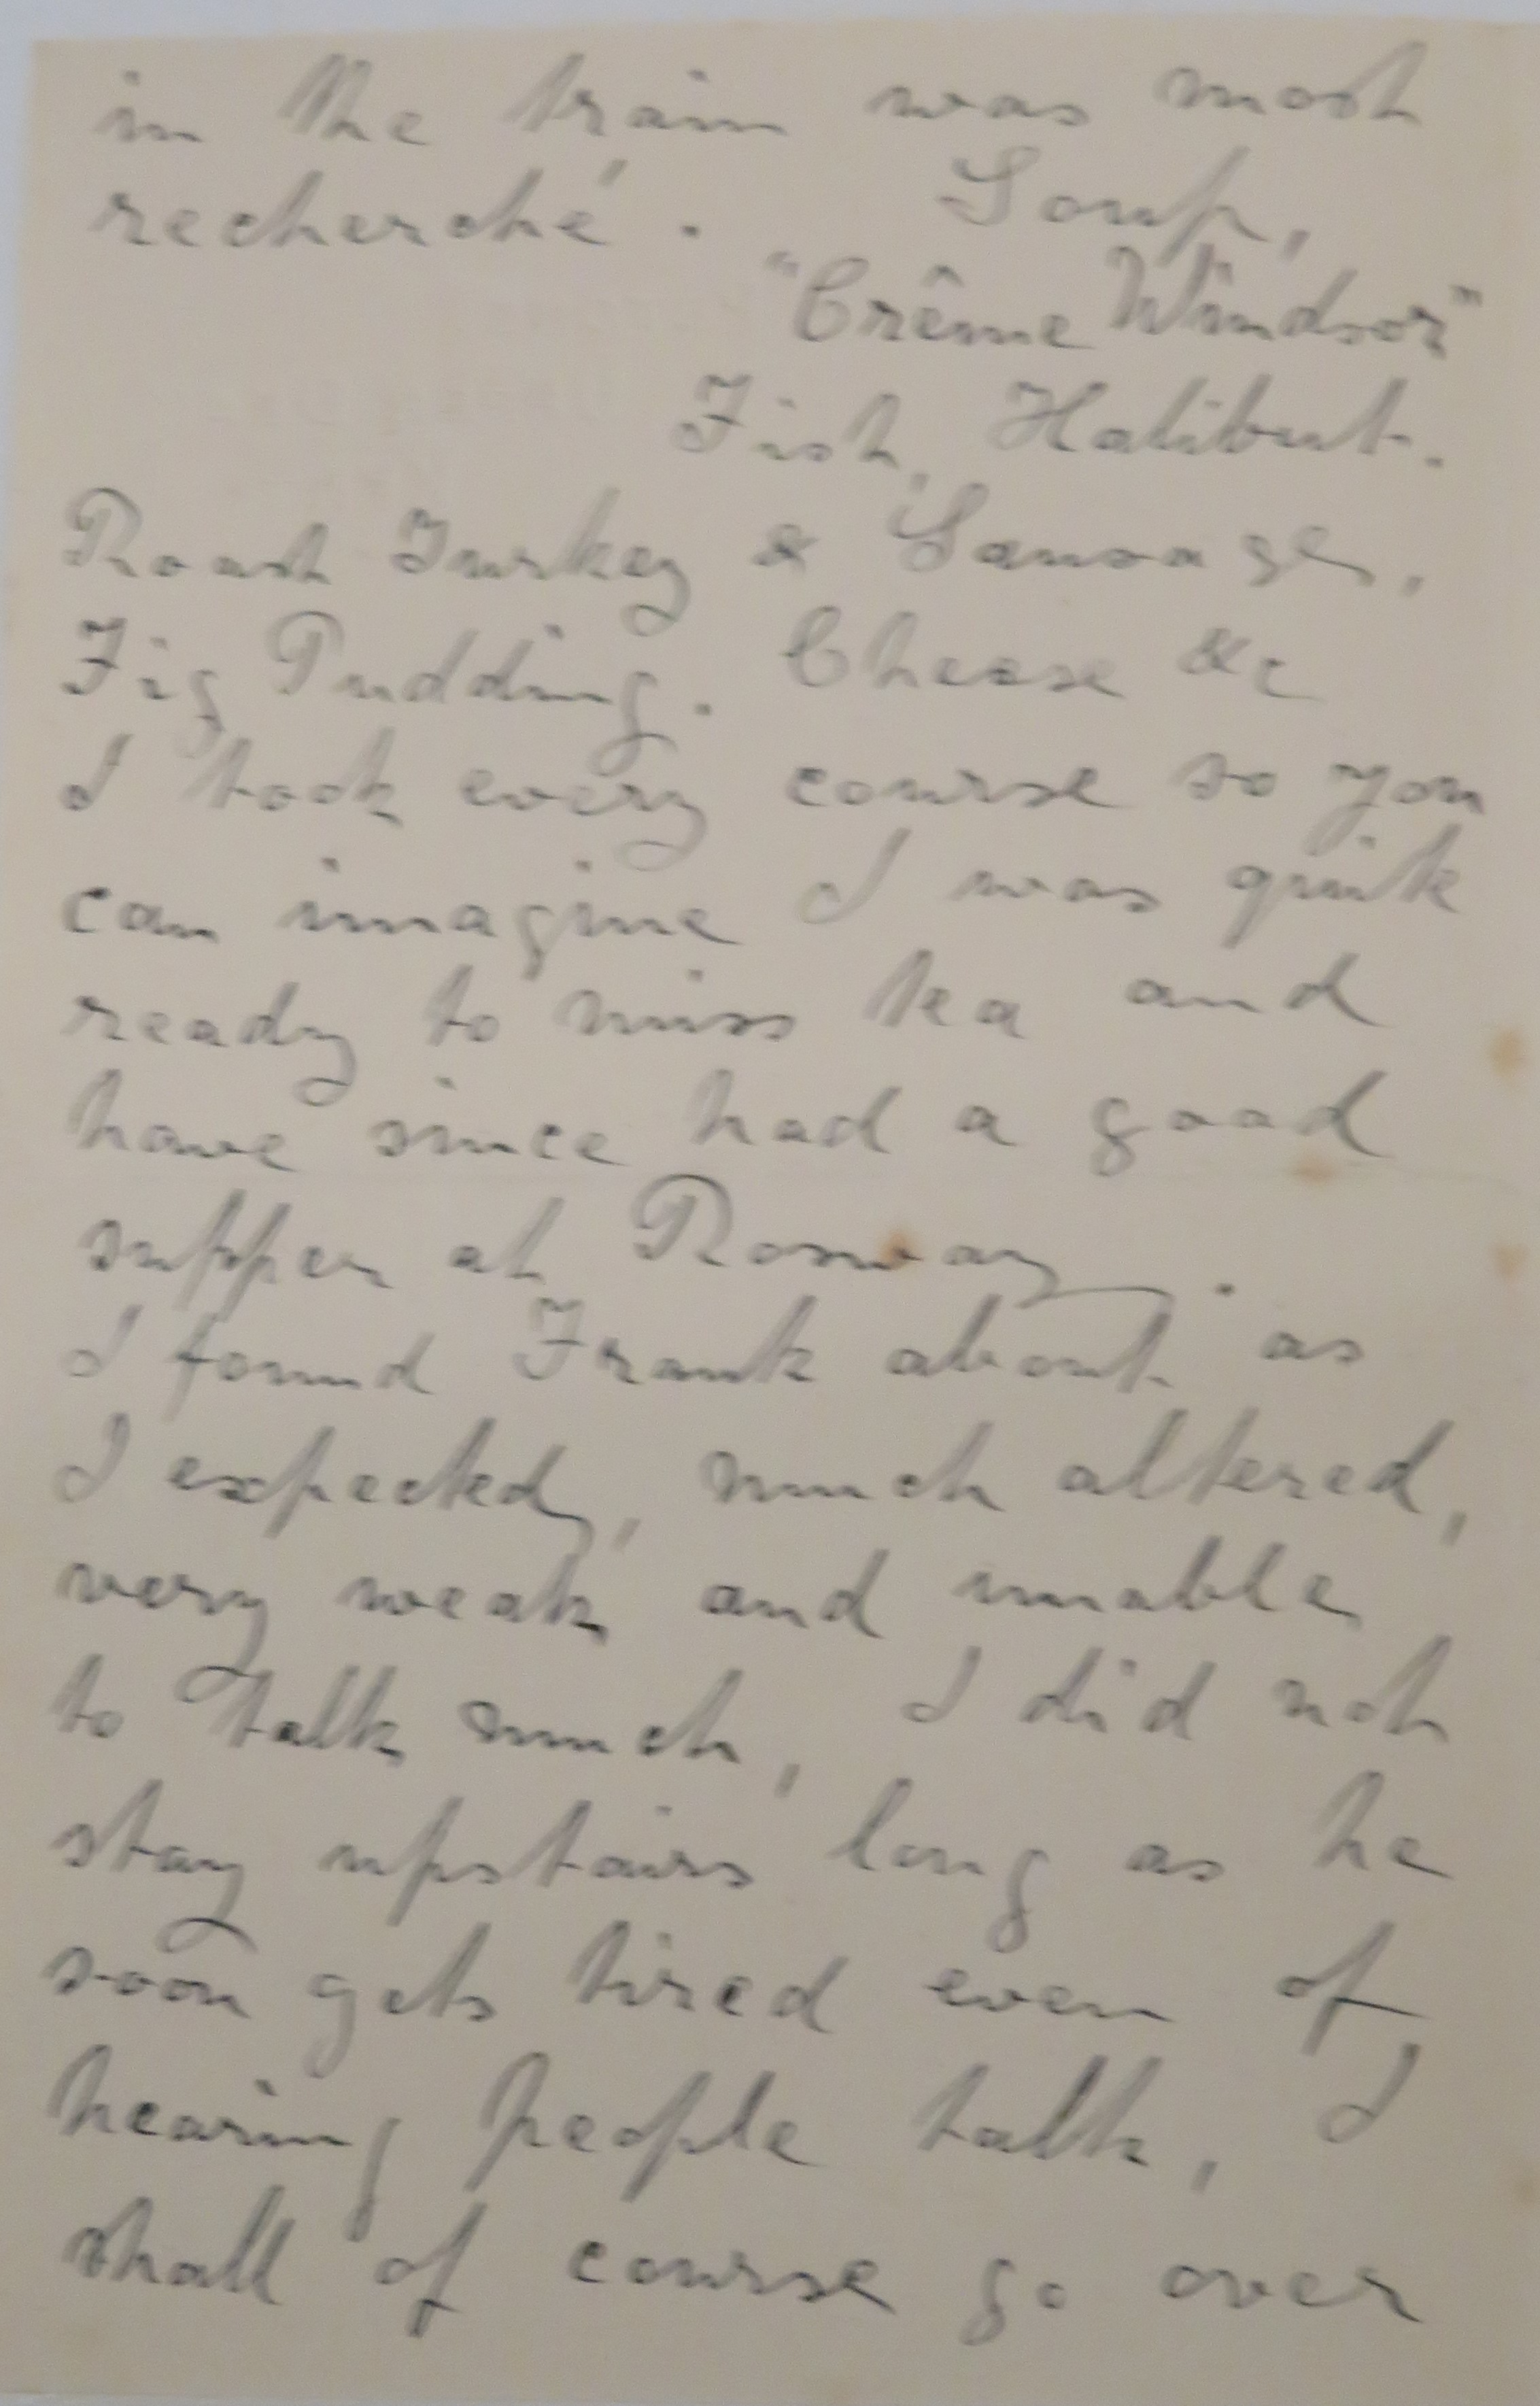 in the train was most
recherché. Soup,
"Crême Windsor"
Fish, Halibut.
Roast Turkey & Sausages,
Fig Pudding. Cheese &c
I took every course so you
can imagine I was quite
ready to miss tea and
have since had a good
supper at
I found Frank about as
I expected, much altered,
very weak and unable
to talk much, I did not
stay upstairs long as he
soon gets tired even of
hearing people talk, I
shall of course go over